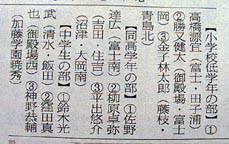 【小学校低学年の部】①
高橋源宜（富士・田子浦）
②勝又健太（御殿場・富士
岡）③金子林太郎（藤枝・
青島北）
【同高学年の部】①佐野
達広（富士南）②柳原卓弥
（吉田・住吉）③平出悠介
（沼津・大岡南）
【中学年の部】①鈴木光
武（清水・飯田）②窪田真
也（御殿場西）③神野恭輔
（加藤学園暁秀）